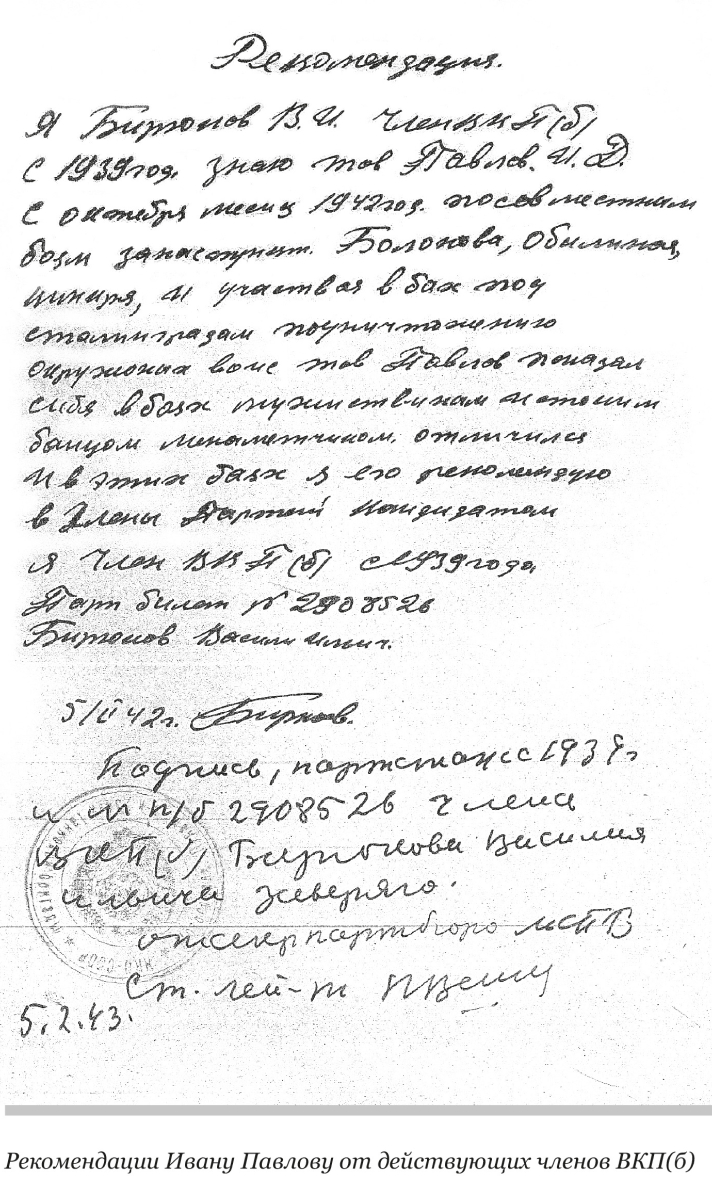 Рекомендация.
Я Бирюков В.И. член ВКП(б)
с 1939 год. знаю тов Павлов. И.Д.
с октября месяц 1942 год. по совместным
боям за населен. Обильная,
и участвоя в боях под
сталинградам по уничтожению
окружоных воис тов Павлов показал
себя в боях и стоким
бойцом минаметчиком. отличился
и в этих боях я его рекомендую
в Члены Партии Кандидатом
я член ВКП(б) с 1939 года
Парт билет № 2908526
Бирюков Васили Илич.
5/II 42 г. Бирюков.
Подпись, партстаж с 1939 г
и № п/б 2908526 члена
ВКП(б) Бирюкова Василия
Ильича заверяю.
партбюро
Ст. лей-т
5.2.43.
Рекомендации Ивану Павлову от действующих членов ВКП(б)